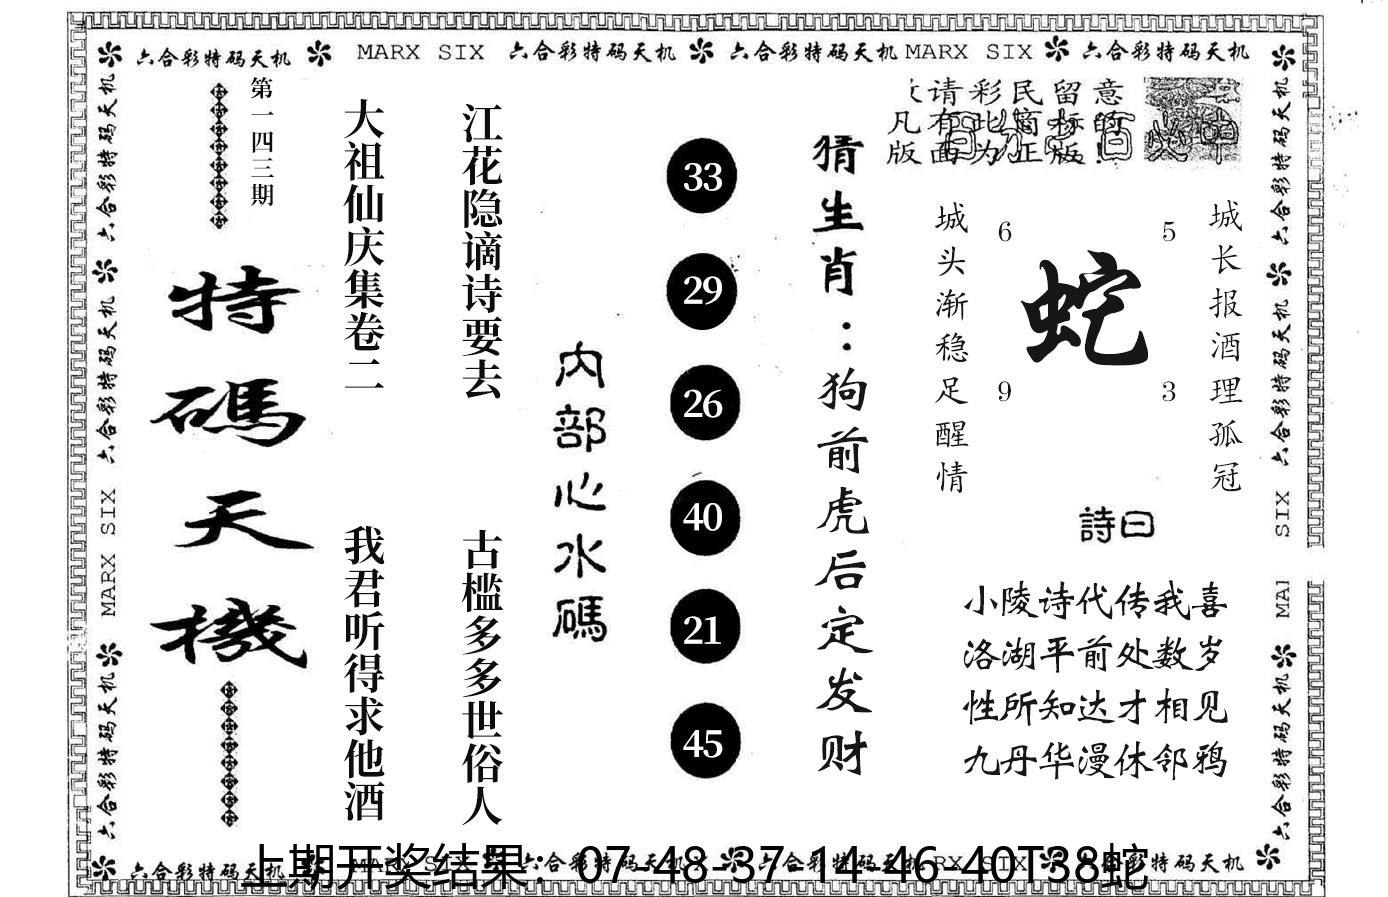 六合彩特码天机 MARX SIX 六合彩特码天机 六合彩特码天机 MARX SIX 六合彩特码天机
六合彩特码天机 六合彩特码天机 MARX SIX 六合彩特码天机
第一四三期
特碼天機
大祖仙庆集卷二
我君听得求他酒
江花隐谪诗要去
古槛多多世俗人
内部心水碼
33
29
26
40
21
45
猜生肖：狗前虎后定发财
请彩民留意
凡有此商标的
版面为正版!
城头渐稳足醒情
6
5
蛇
9
3
城长报酒理孤冠
詩曰
小陵诗代传我喜
洛湖平前处数岁
性所知达才相见
九丹华漫休邻鸦
六合彩特码天机 六合彩特码天机 SIX MA
六合彩特码天机
六合彩特码天机 MARX SIX 六合彩特码天机 六合彩特码天机 RX SIX 六合彩特码天机
上期开奖结果：07-48-37-14-46-40T38蛇